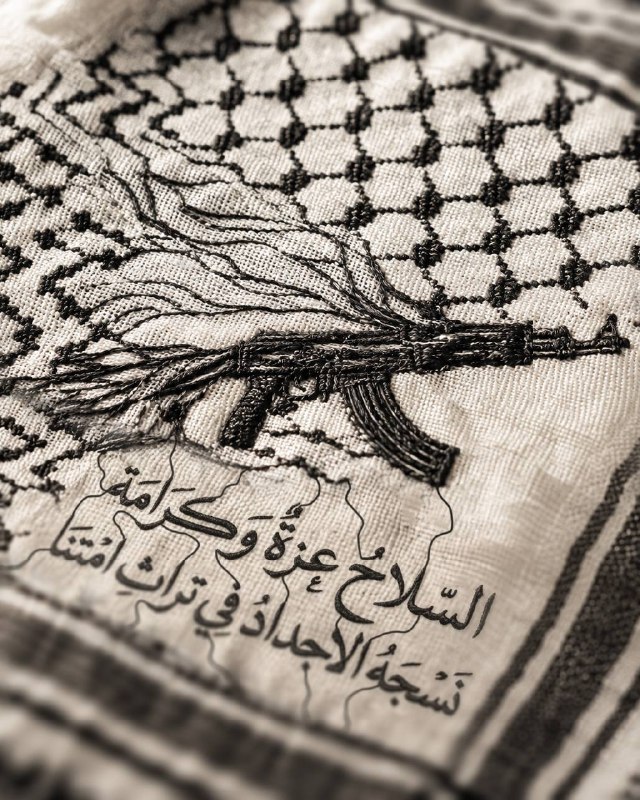 السّلاحُ عِزةٌ وَكَرَامَة
نَسْجَهُ الاجدادُ في تراثِ امْتنَا